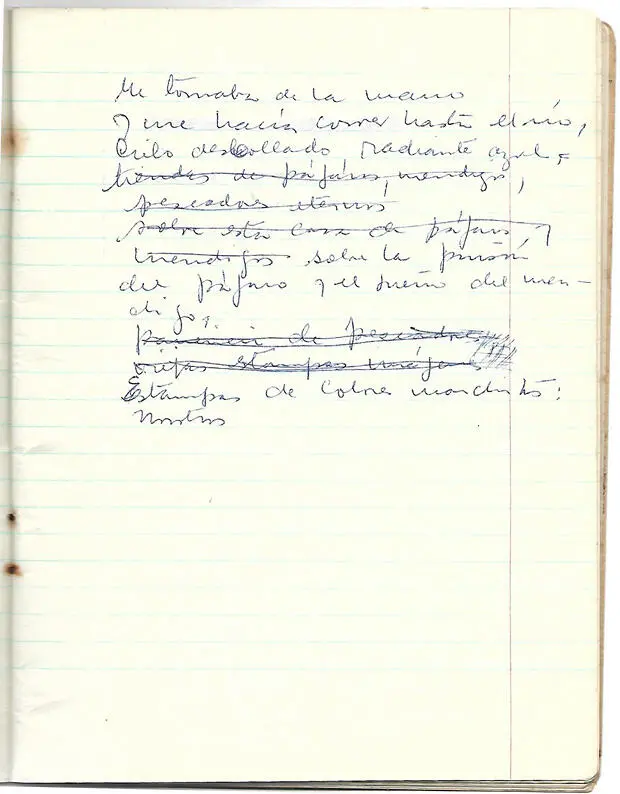 Me tomaba de la mano
y me hacía correr hasta el río,
cielo desollado radiante azul,
tiendas de pájaros, mendigos,
pescadores eternos
sobre esta casa de pájaros y
mendigos sobre la prisión
del pájaro y el sueño del men-
digo:
de pescadores
viejas estampas
Estampas de colores marchitos:
Nosotros